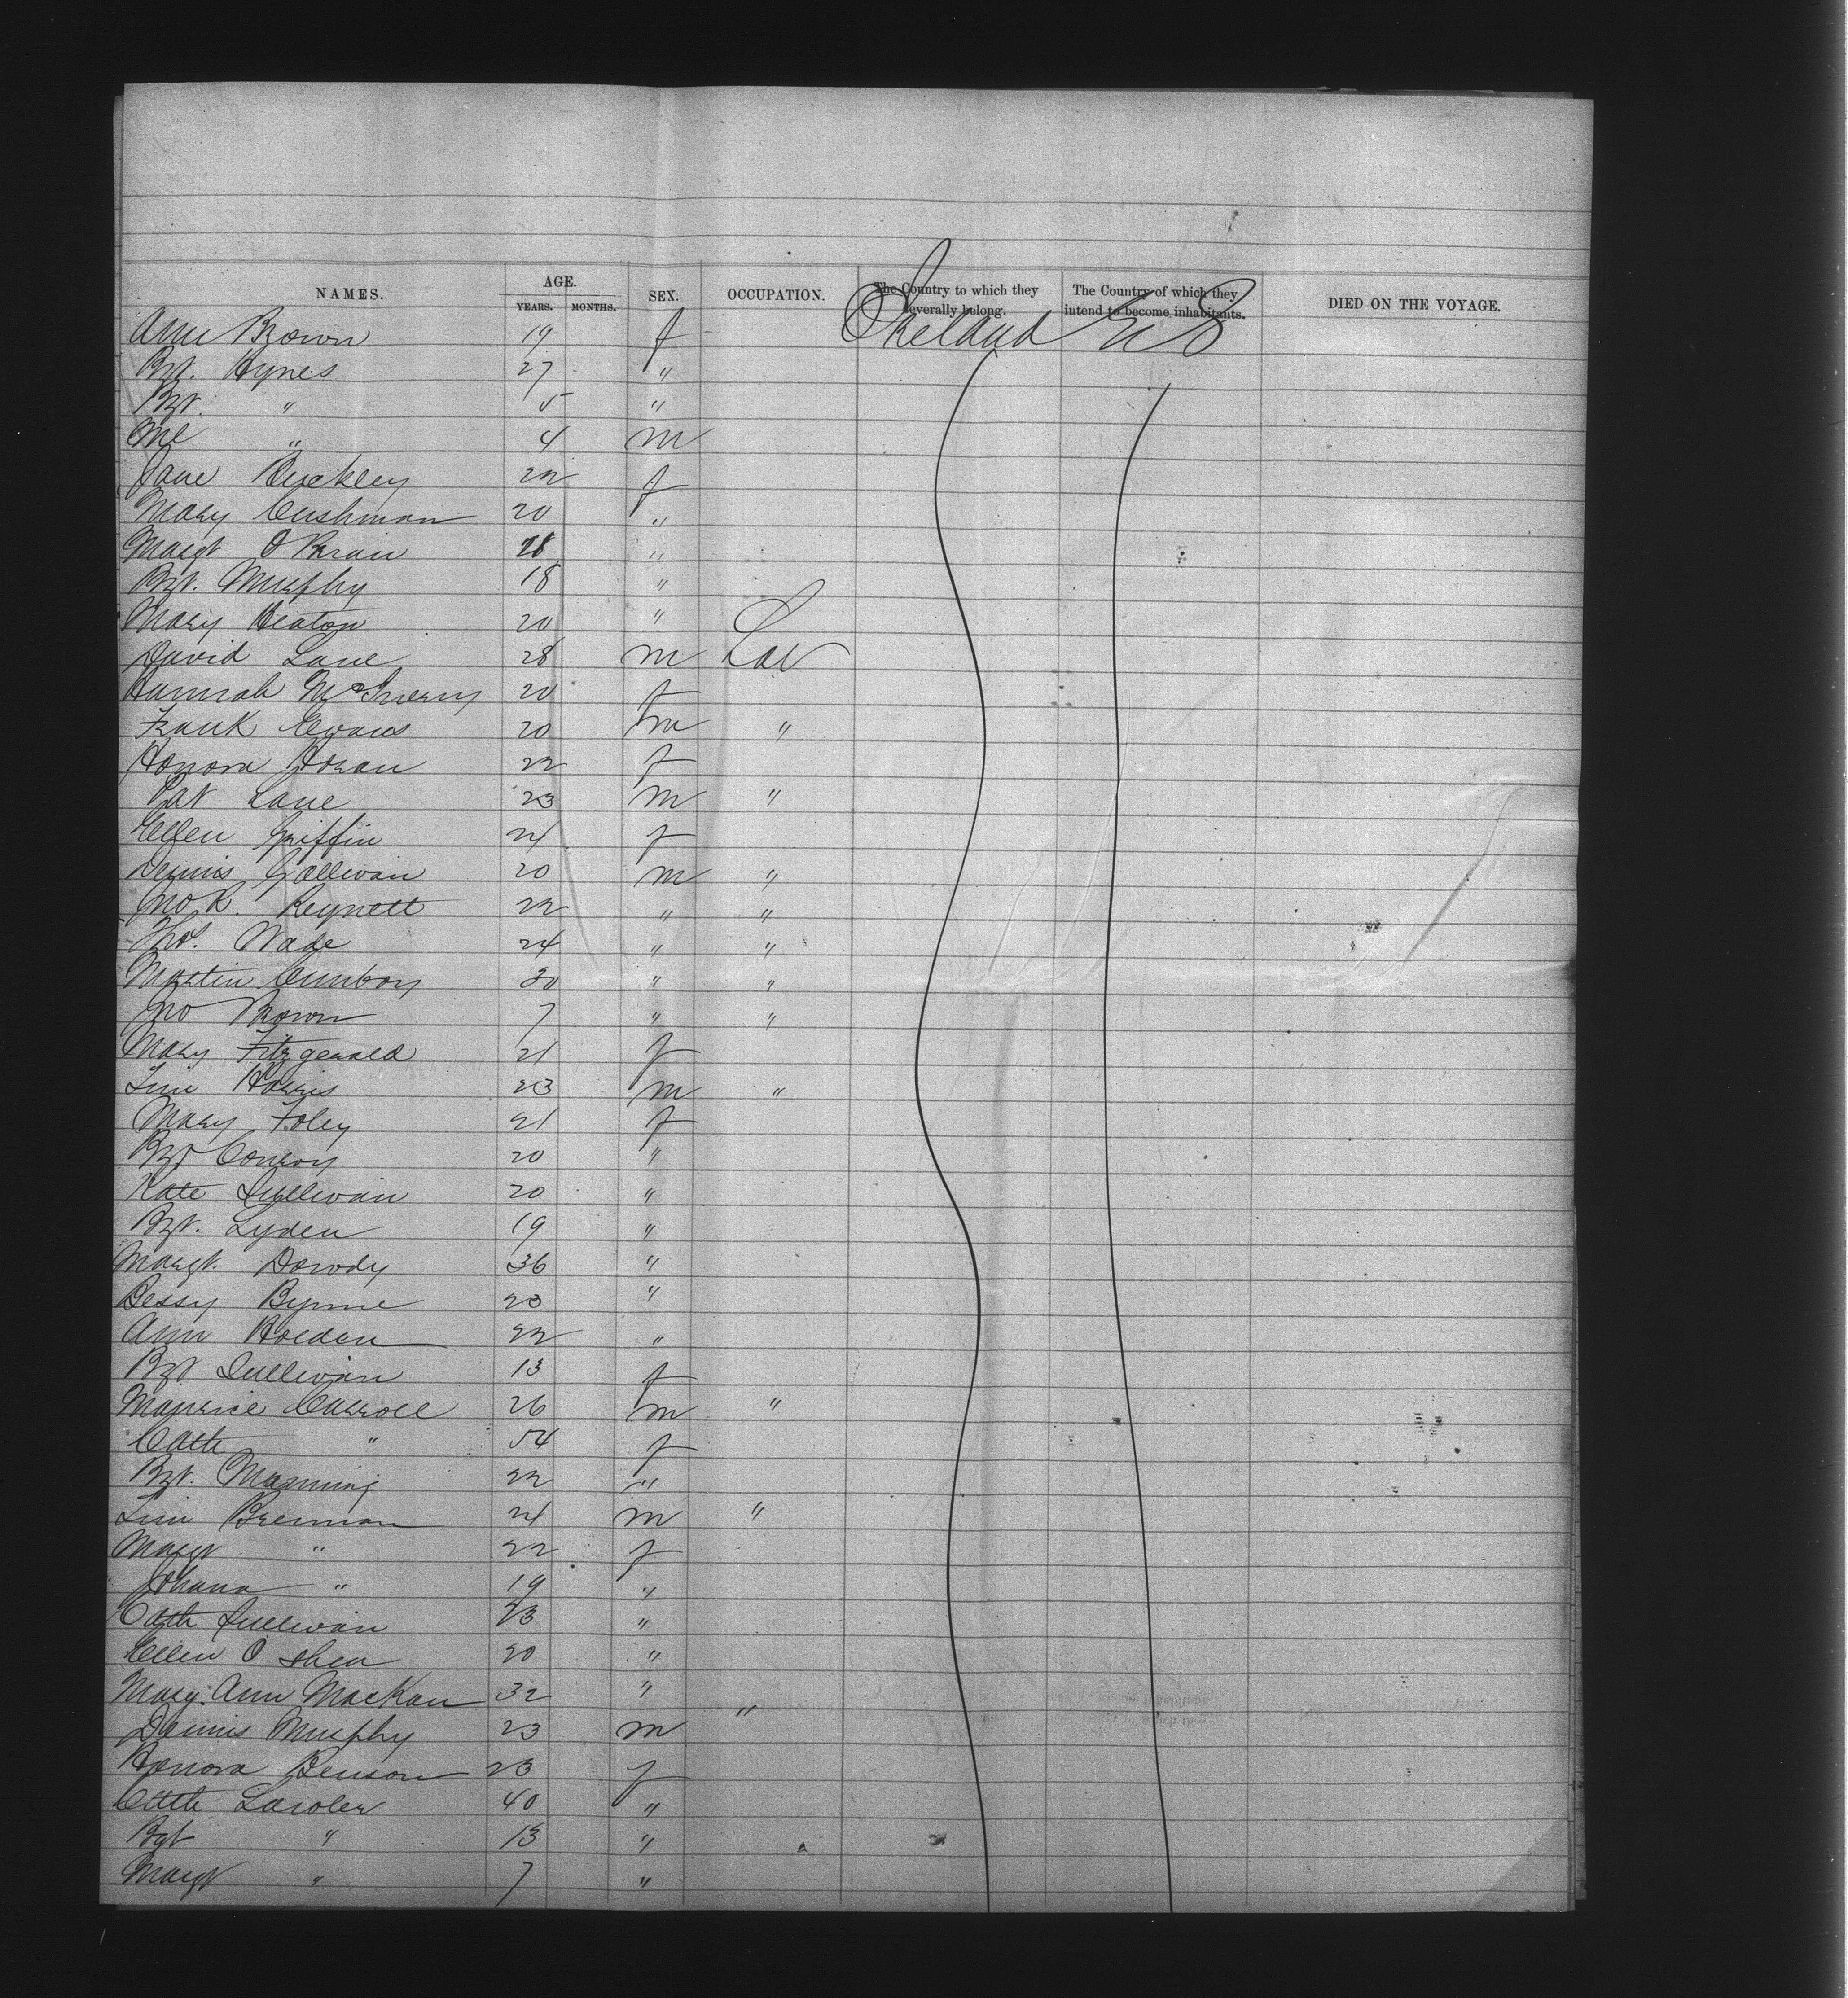 NAMES. AGE. SEX. OCCUPATION. The Country to which they severally belong. The Country of which they intend to become inhabitants. DIED ON THE VOYAGE.
YEARS. MONTHS.
Ann Brown 19 f Ireland U S
Bgt. Hynes 27 "
Bgt. " 5 "
Ml " 4 m
Jane Buckley 22 f
Mary Cushman 20 "
Margt O Brien 28 "
Bgt. Murphy 18 "
Mary Heaton 20 "
David Lane 28 m Lab
Hannah McInerny 20 f
Frank Evans 20 m "
Honora Horan 22 f
Pat Lane 23 m "
Ellen Griffin 24 f
Dennis Gallivan 20 m "
Jno R. Reynett 22 " "
Thos. Wade 24 " "
Martin Conboy 30 " "
Jno Brown 7 " "
Mary Fitzgerald 21 f
Tim Harris 23 m "
Mary Foley 21 f
Bgt Conroy 20 "
Kate Sullivan 20 "
Bgt. Lyden 19 "
Margt. Dowdy 36 "
Bessy Byrne 23 "
Ann Holden 22 "
Bgt Sullivan 13 f
Maurice Carroll 26 m "
Cath " 54 f
Bgt. Manning 22 "
Tim Brennan 24 m "
Margt " 22 f
Johana " 19 "
Cath Sullivan 23 "
Ellen O Shea 20 "
Mary Ann Mackan 32 " "
Dennis Murphy 23 m
Honora Benson 23 f
Cath Lawler 40 "
Bgt " 13 "
Margt " 7 "